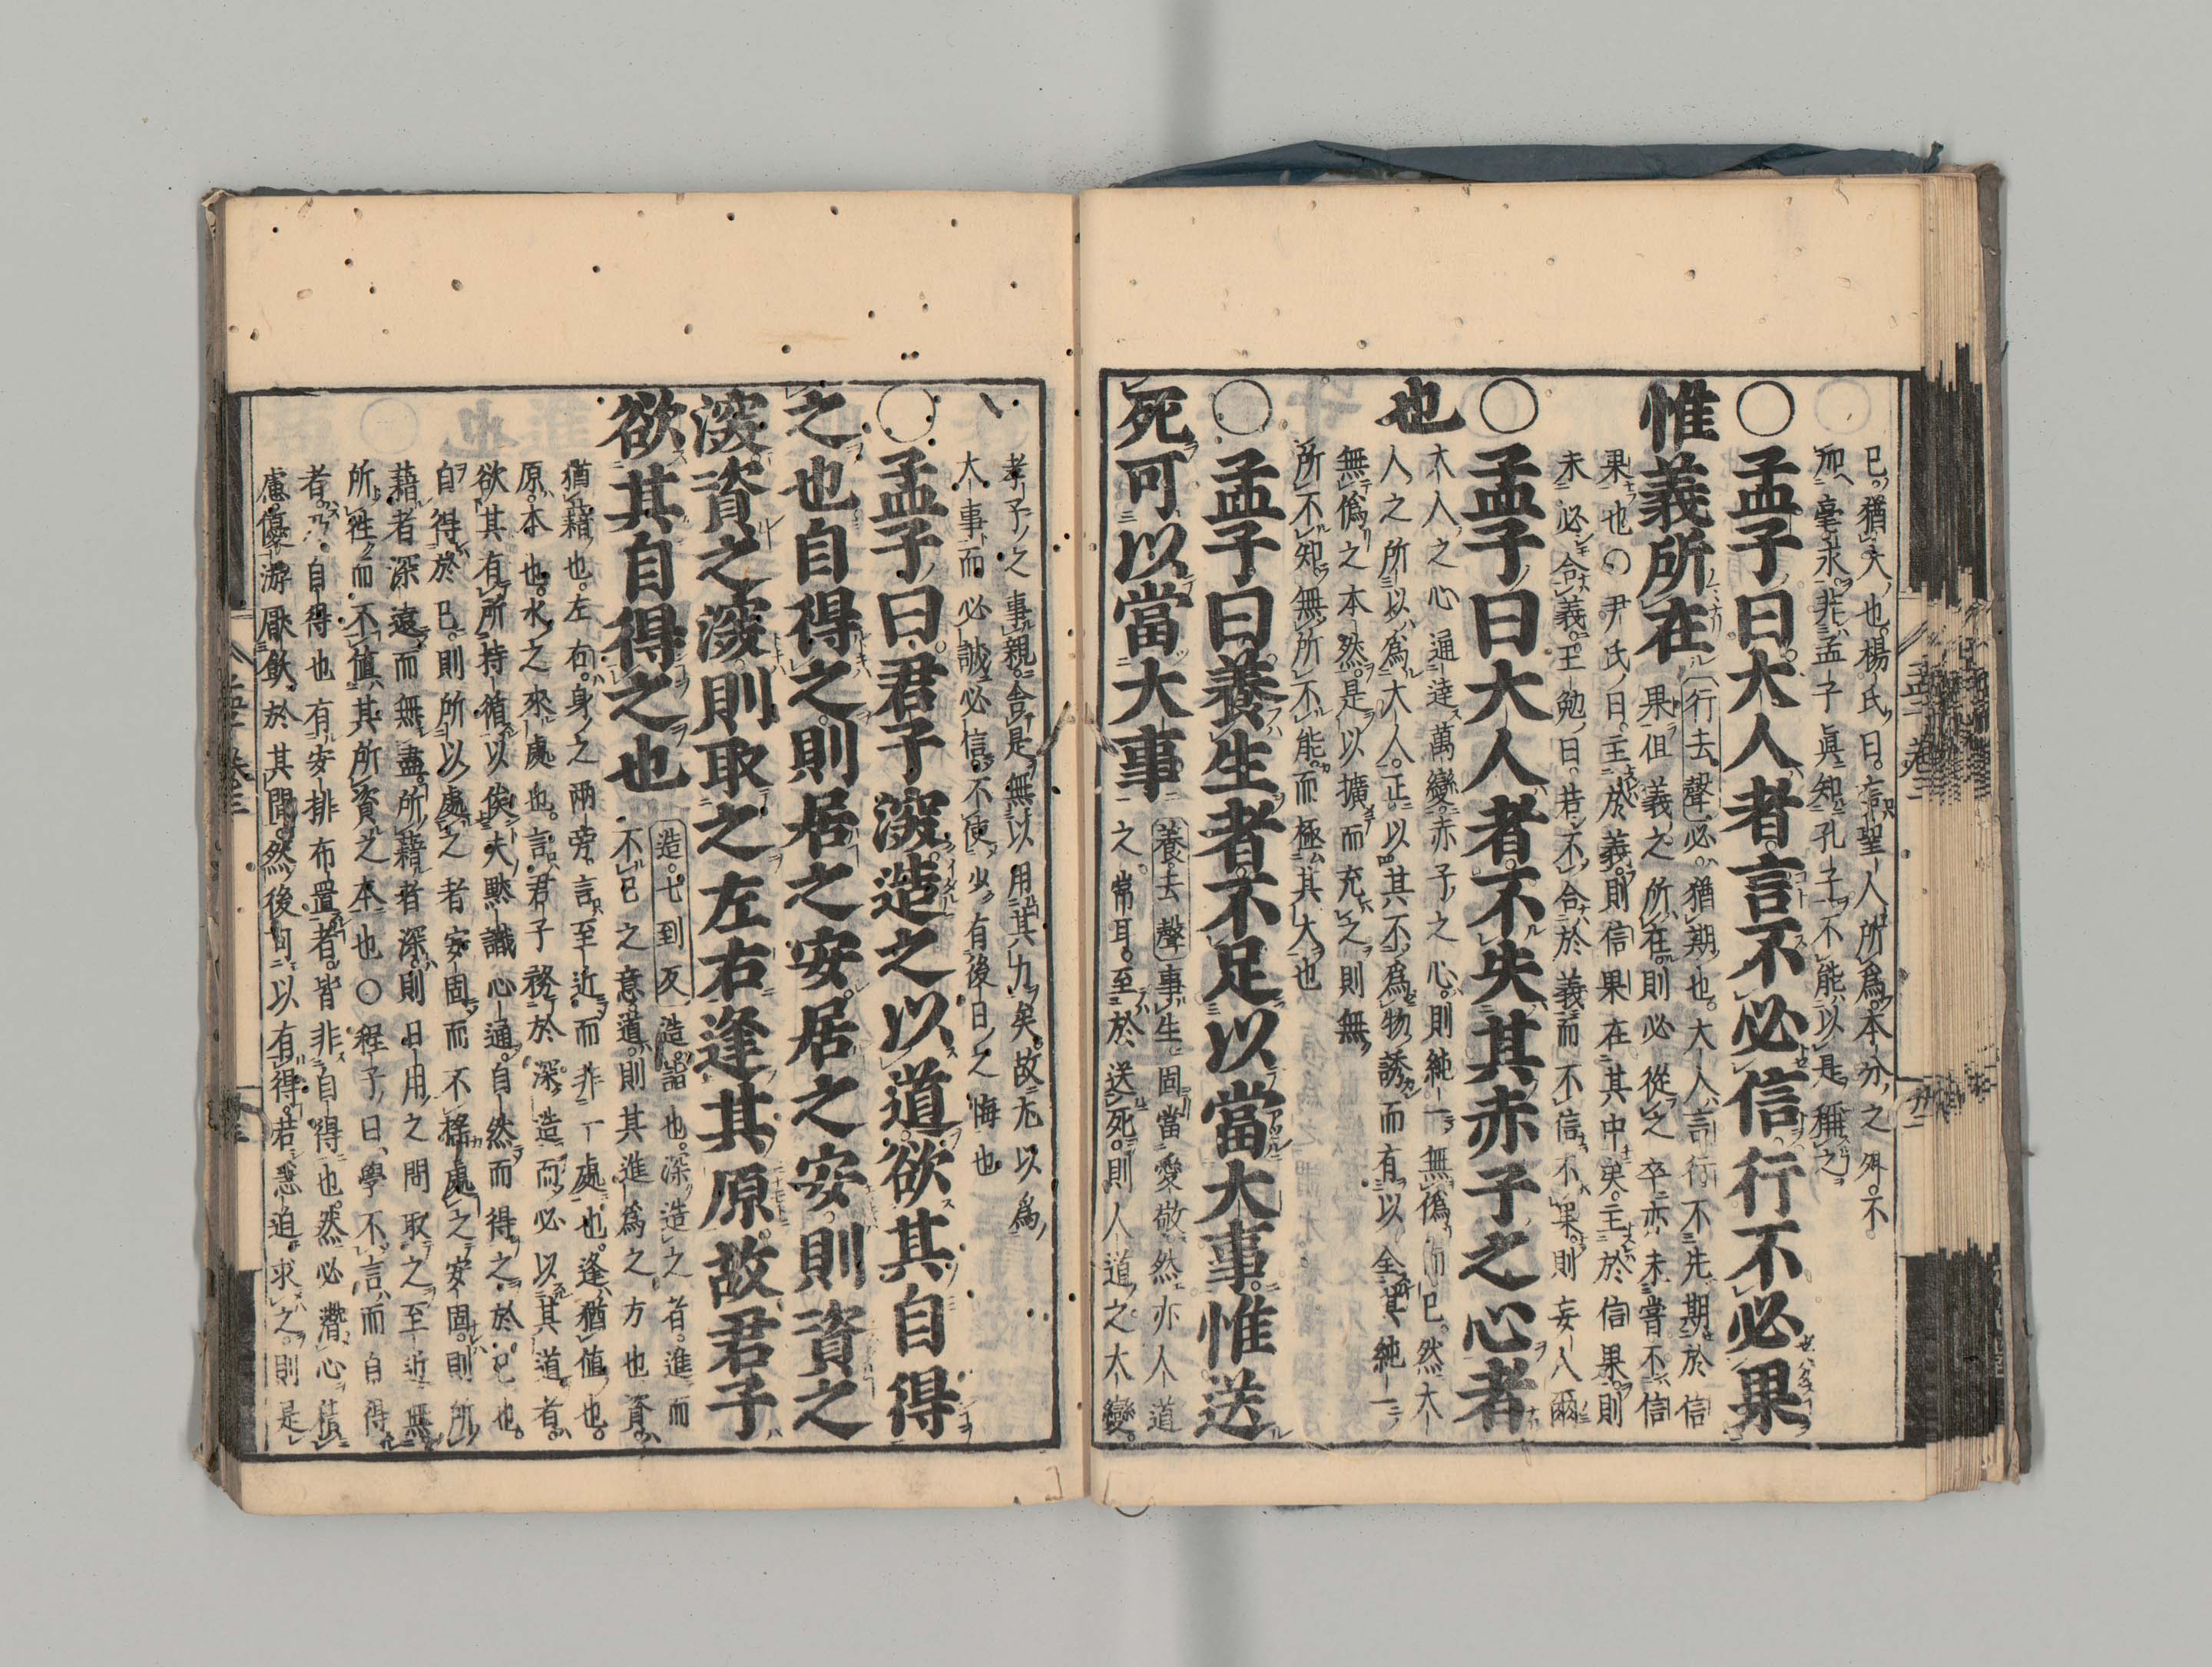 已猶太也楊氏曰言聖人所爲本分之外不
加毫末非孟子眞知孔子不能以是稱之
○孟子曰大人者言不必信行不必果
惟義所在
行去聲必猶期也大人言行不先期於信
果但義之所在則必從之卒亦未嘗不信
果也○尹氏曰主於義則信果在其中矣主於信果則
未必合義王勉曰若不合於義而不信不果則妄人爾
○孟子曰大人者不失其赤子之心者
也
大人之心通達萬變赤子之心則純一無僞而已然大
人之所以爲大人正以其不爲物誘而有以全其純一
無僞之本然是以擴而充之則無
所不知無所不能而極其大也
○孟子曰養生者不足以當大事惟送
死可以當大事
養去聲事生固當愛敬然亦人道
之常耳至於送死則人道之大變
孝子之事親舍是無以用其力矣故尤以爲
大事而必誠必信不使少有後日之悔也
○孟子曰君子深造之以道欲其自得
之也自得之則居之安居之安則資之
深資之深則取之左右逢其原故君子
欲其自得之也
造七到反造詣也深造之者進而
不已之意道則其進爲之方也資
猶藉也左右身之兩旁言至近而非一處也逢猶値也
原本也水之來處也言君子務於深造而必以其道者
欲其有所持循以俟夫黙識心通自然而得之於已也
自得於已則所以處之者安固而不搖處之安固則所
藉者深遠而無盡所藉者深則日用之間取之至近無
所往而不値其所資之本也○程子曰學不言而自得
者乃自得也有安排布置者皆非自得也然必潛心積
慮優游厭飫於其間然後可以有得若急迫求之則是
孟子卷三
孟子卷三